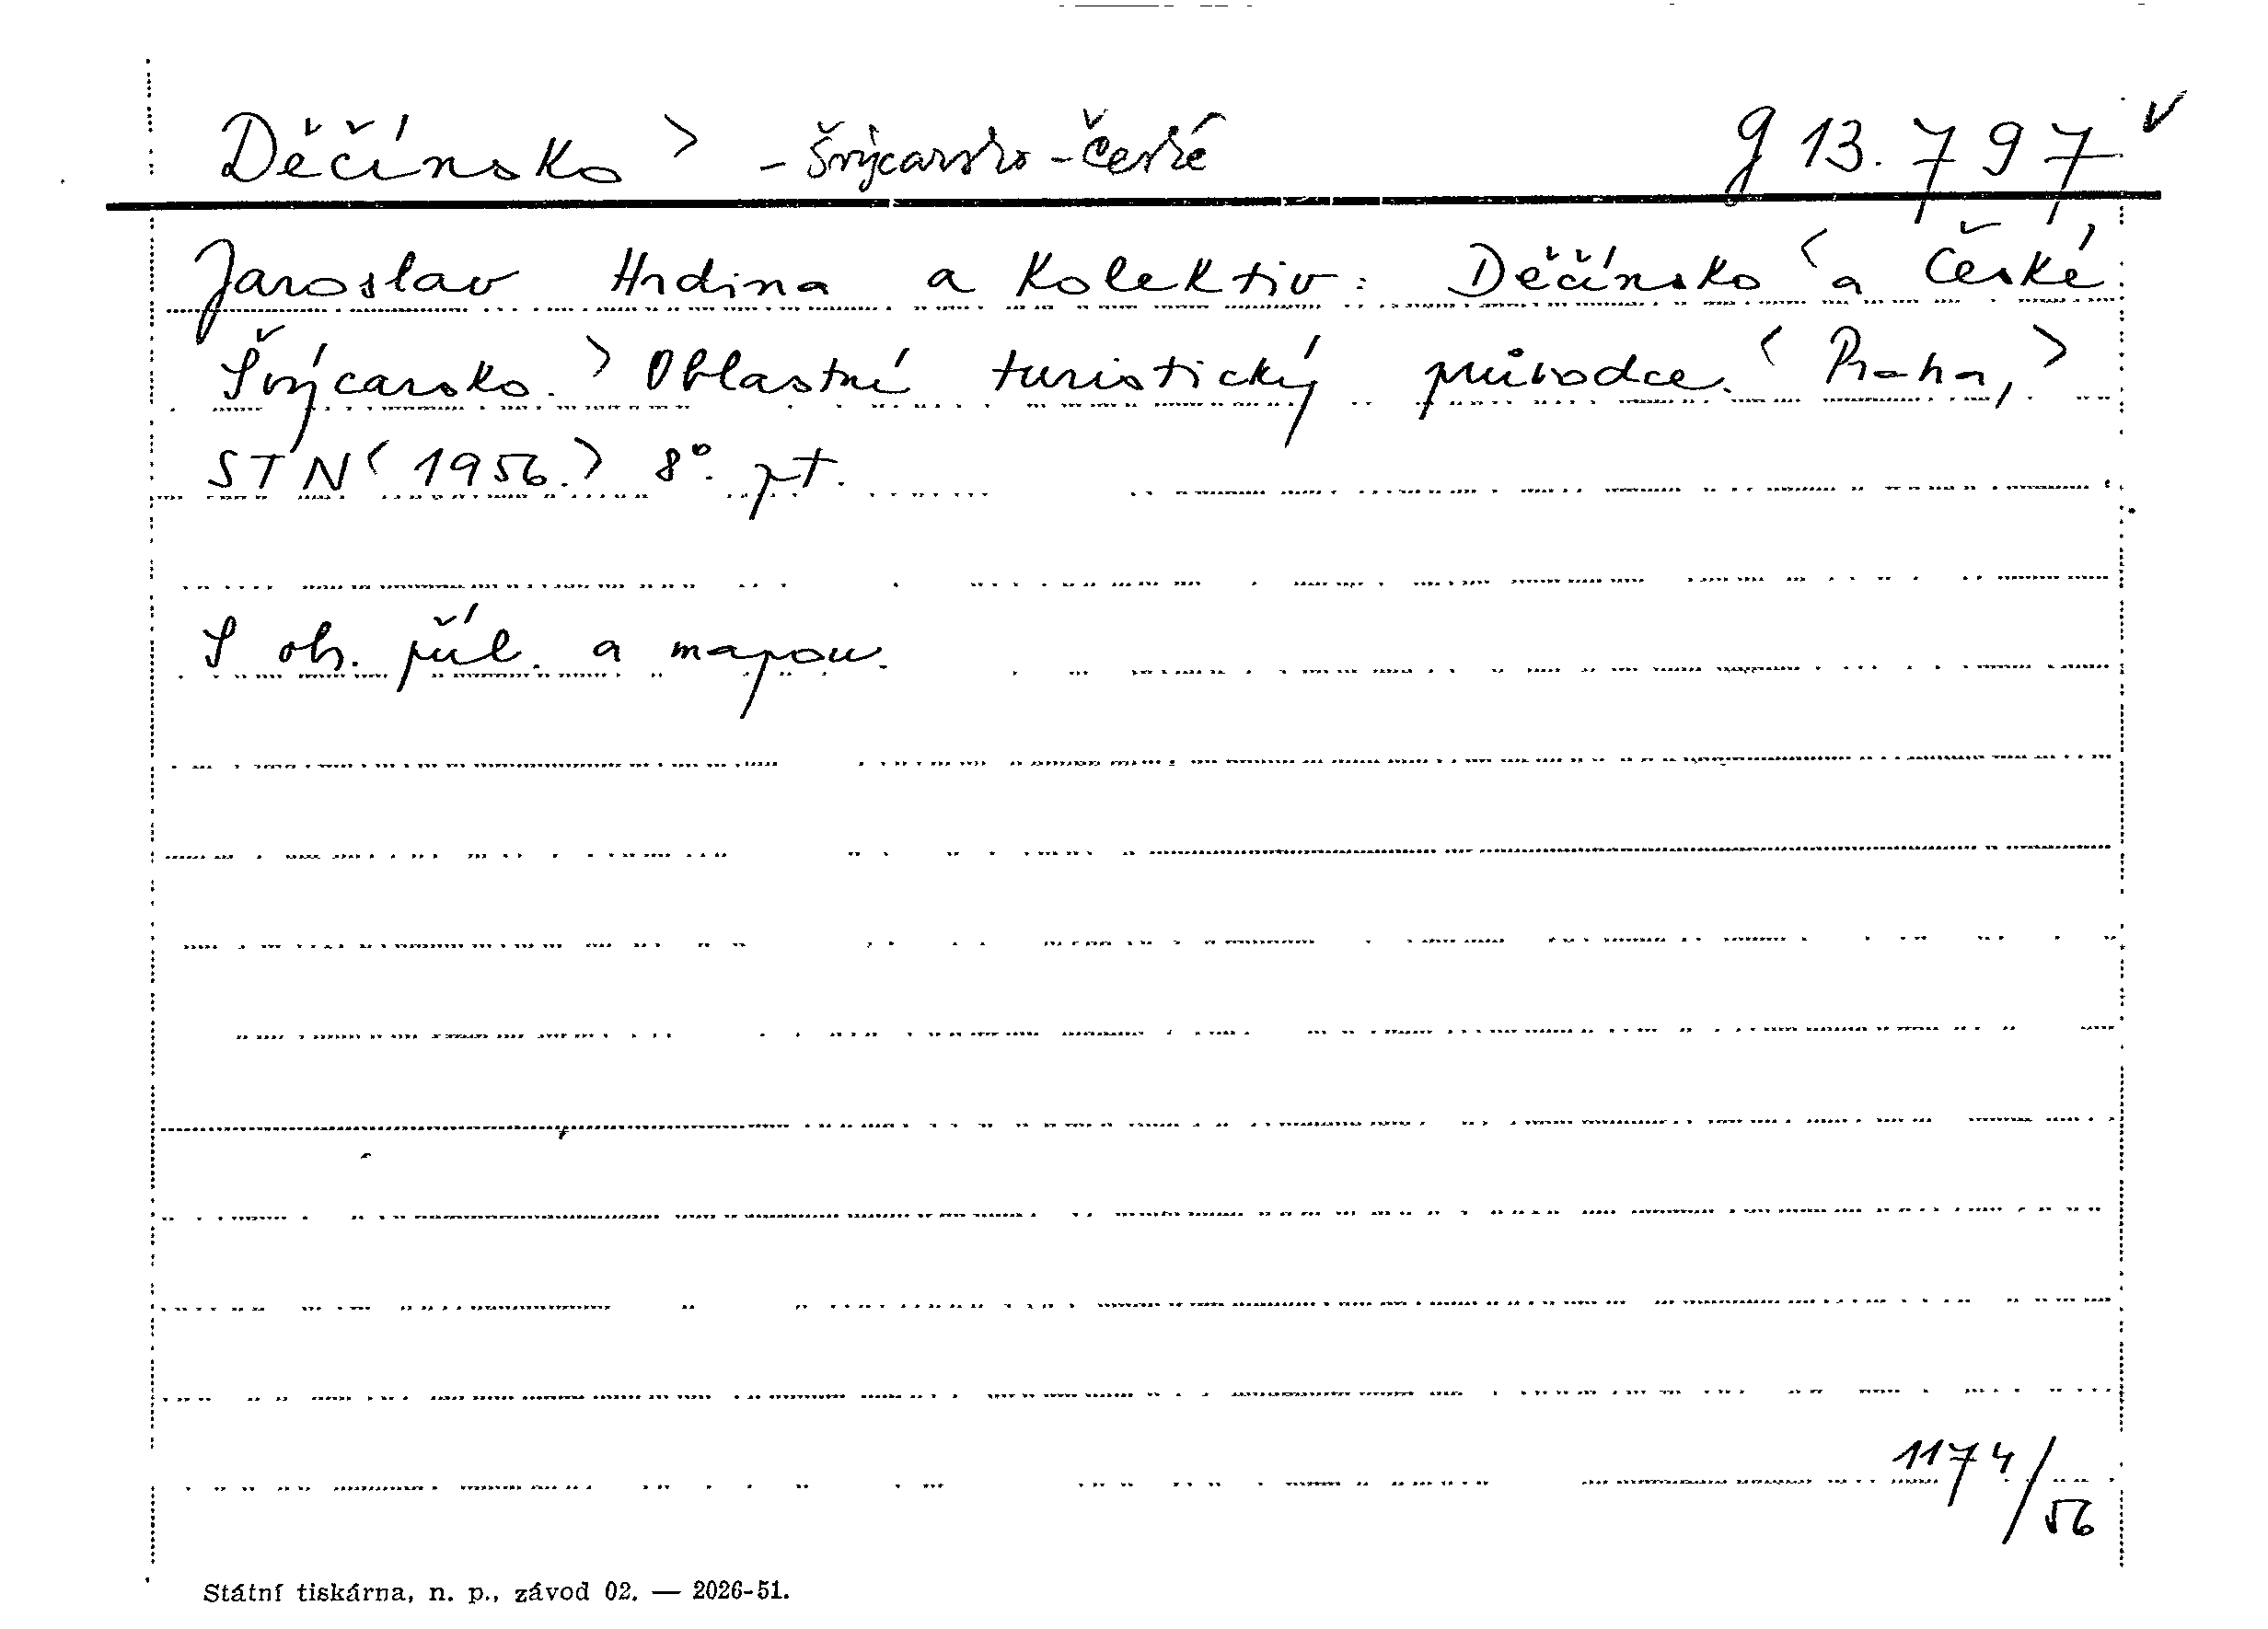 Děčínsko > - Švýcarsko - České g 13.797 v
Jaroslav Hrdina a Kolektiv: Děčínsko < a České
Švýcarsko. > Oblastní turistický průvodce. < Praha, >
STN < 1956. > 8°. pt.
S obr. příl. a mapou.
1174/56
Státní tiskárna, n. p., závod 02. — 2026-51.